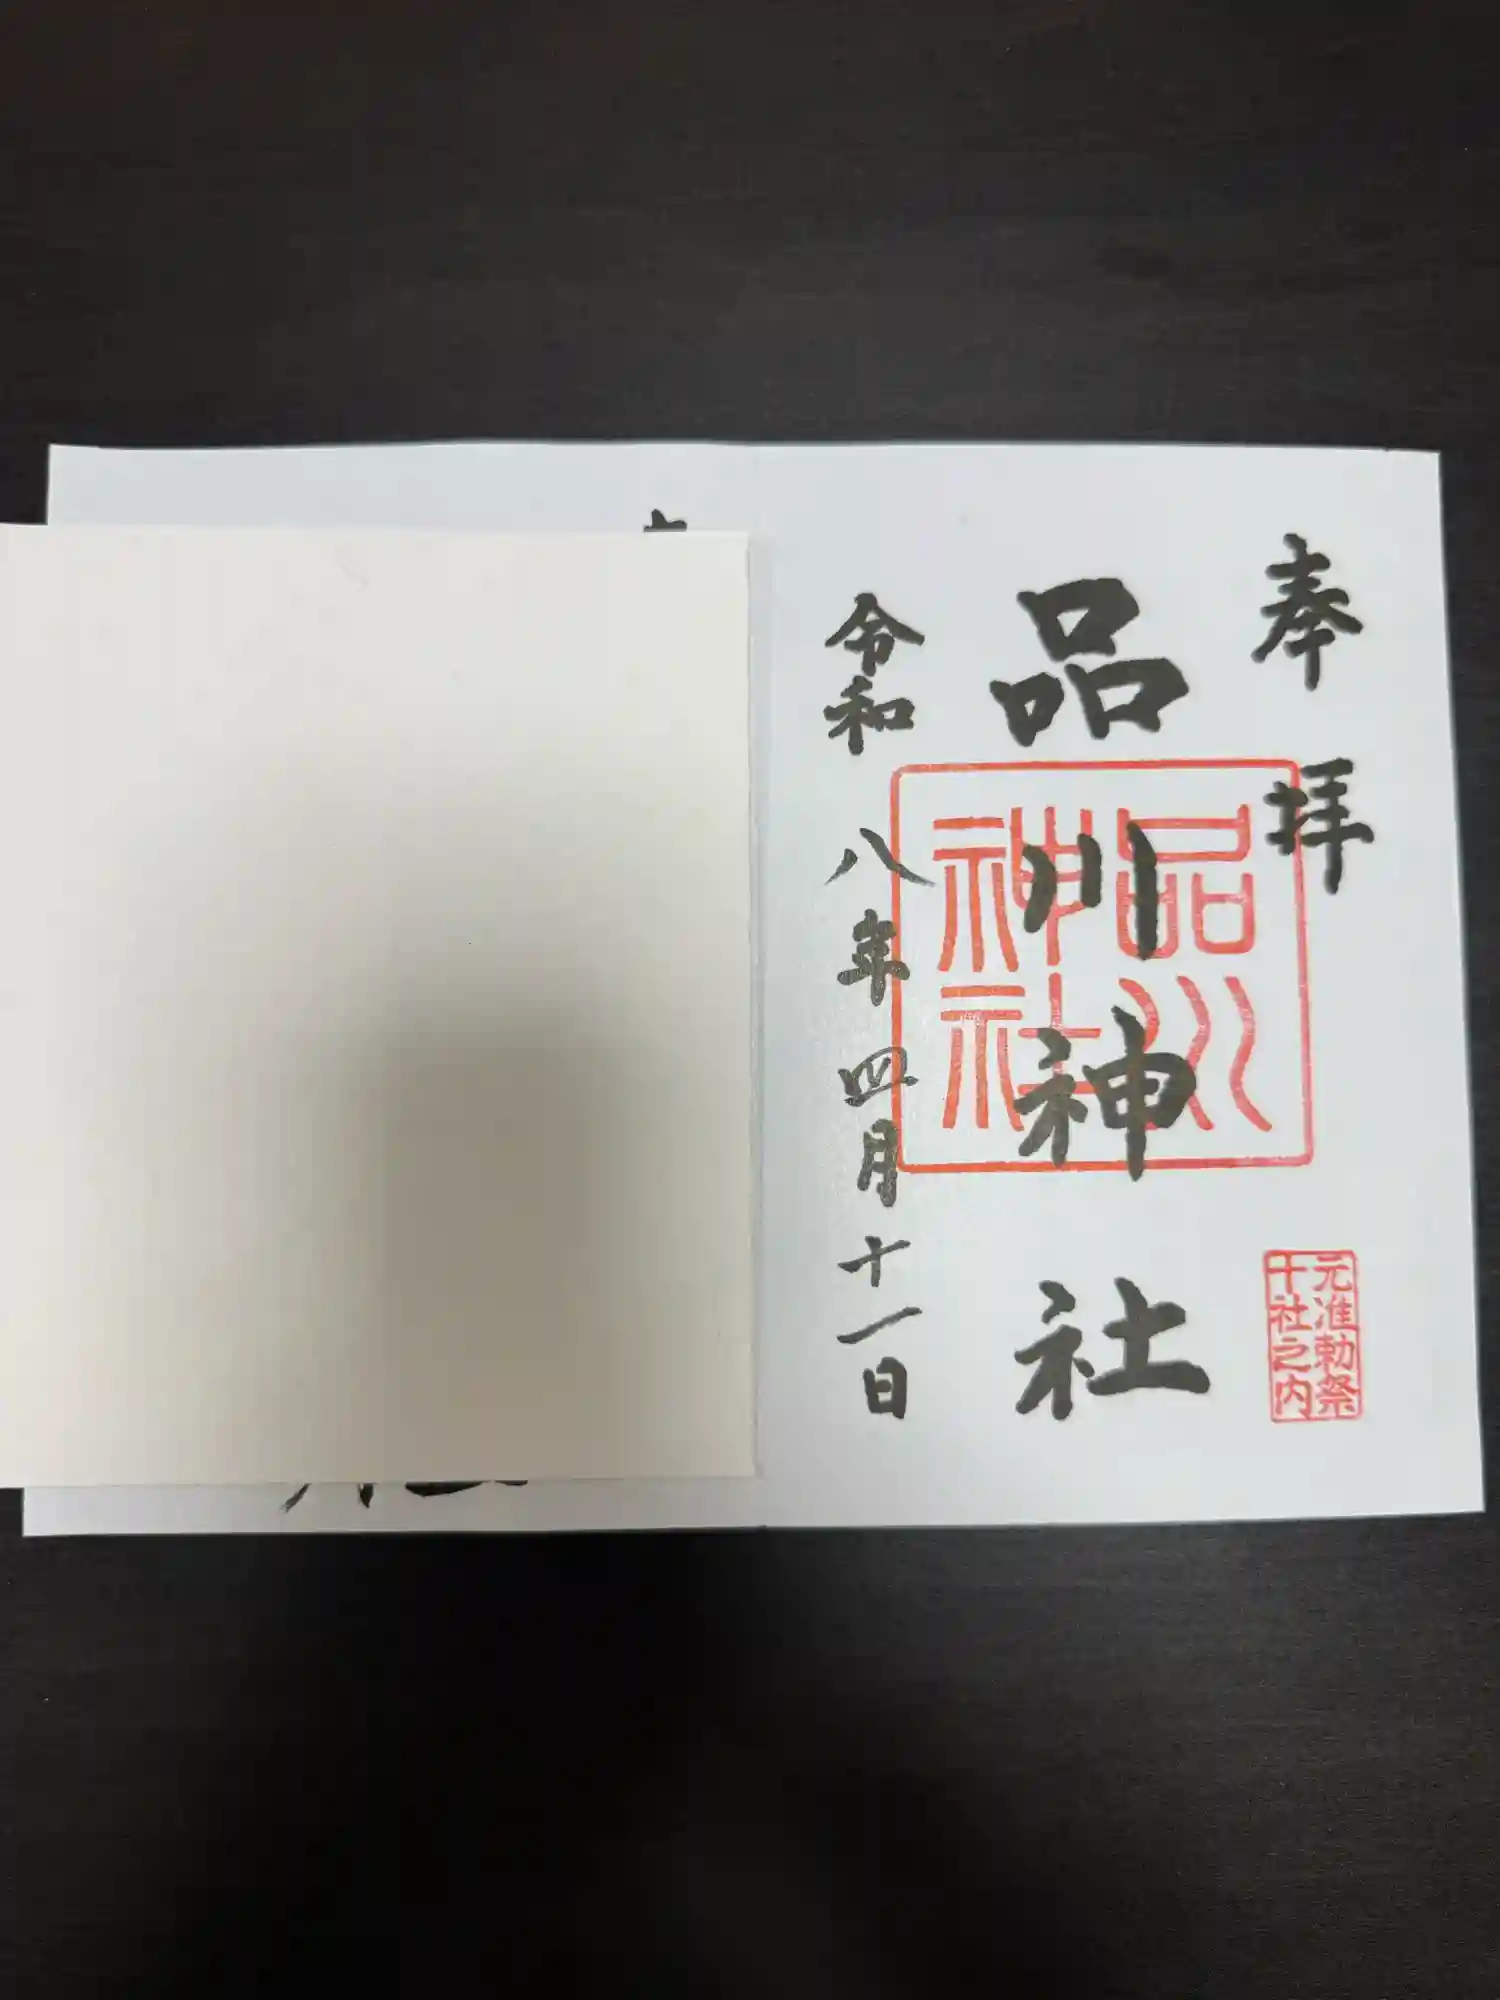 奉拝
品川神社
品川
神社
元准勅祭
十社之内
令和八年四月十一日